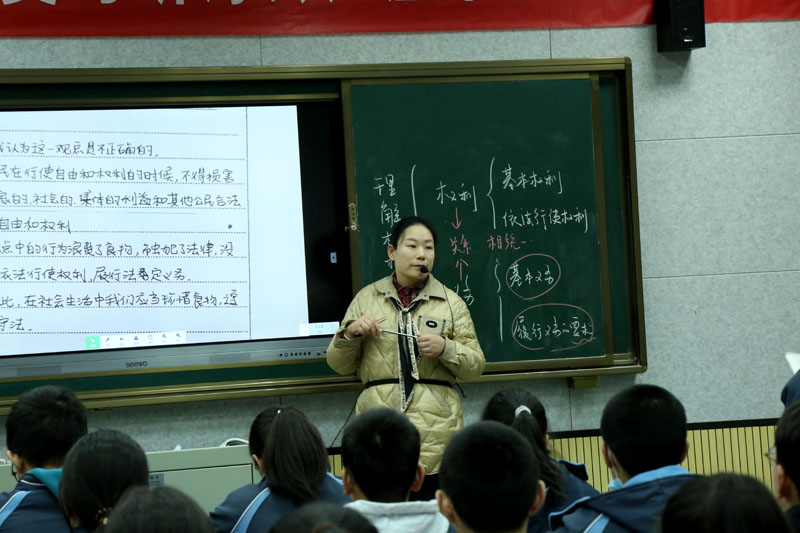 我认为这一观点是不正确的。
民在行使自由和权利的时候,不得损害
家的、社会的、集体的利益和其他公民合法
自由和权利
点中的行为浪费了食物,而且犯了法律,没
依法行使权利,履行法定义务。
此,在社会生活中我们应当珍惜食物,遵
守法。
seewo
理解
权利
基本权利
依法行使权利
关系
相统一
义务
基本义务
履行义务